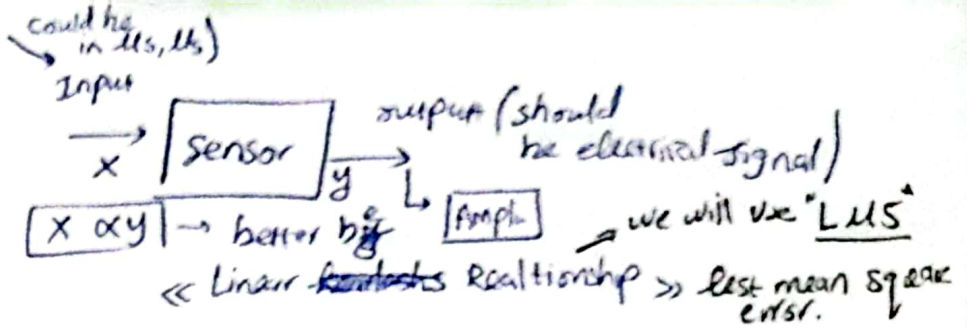 could be
in Ms, Ms)
Input
x
Sensor
y
output (should
be electrical signal)
Ampl.
x α y → better be
we will use "LMS"
<< Linear Realtionship >> lest mean sqeare
error.